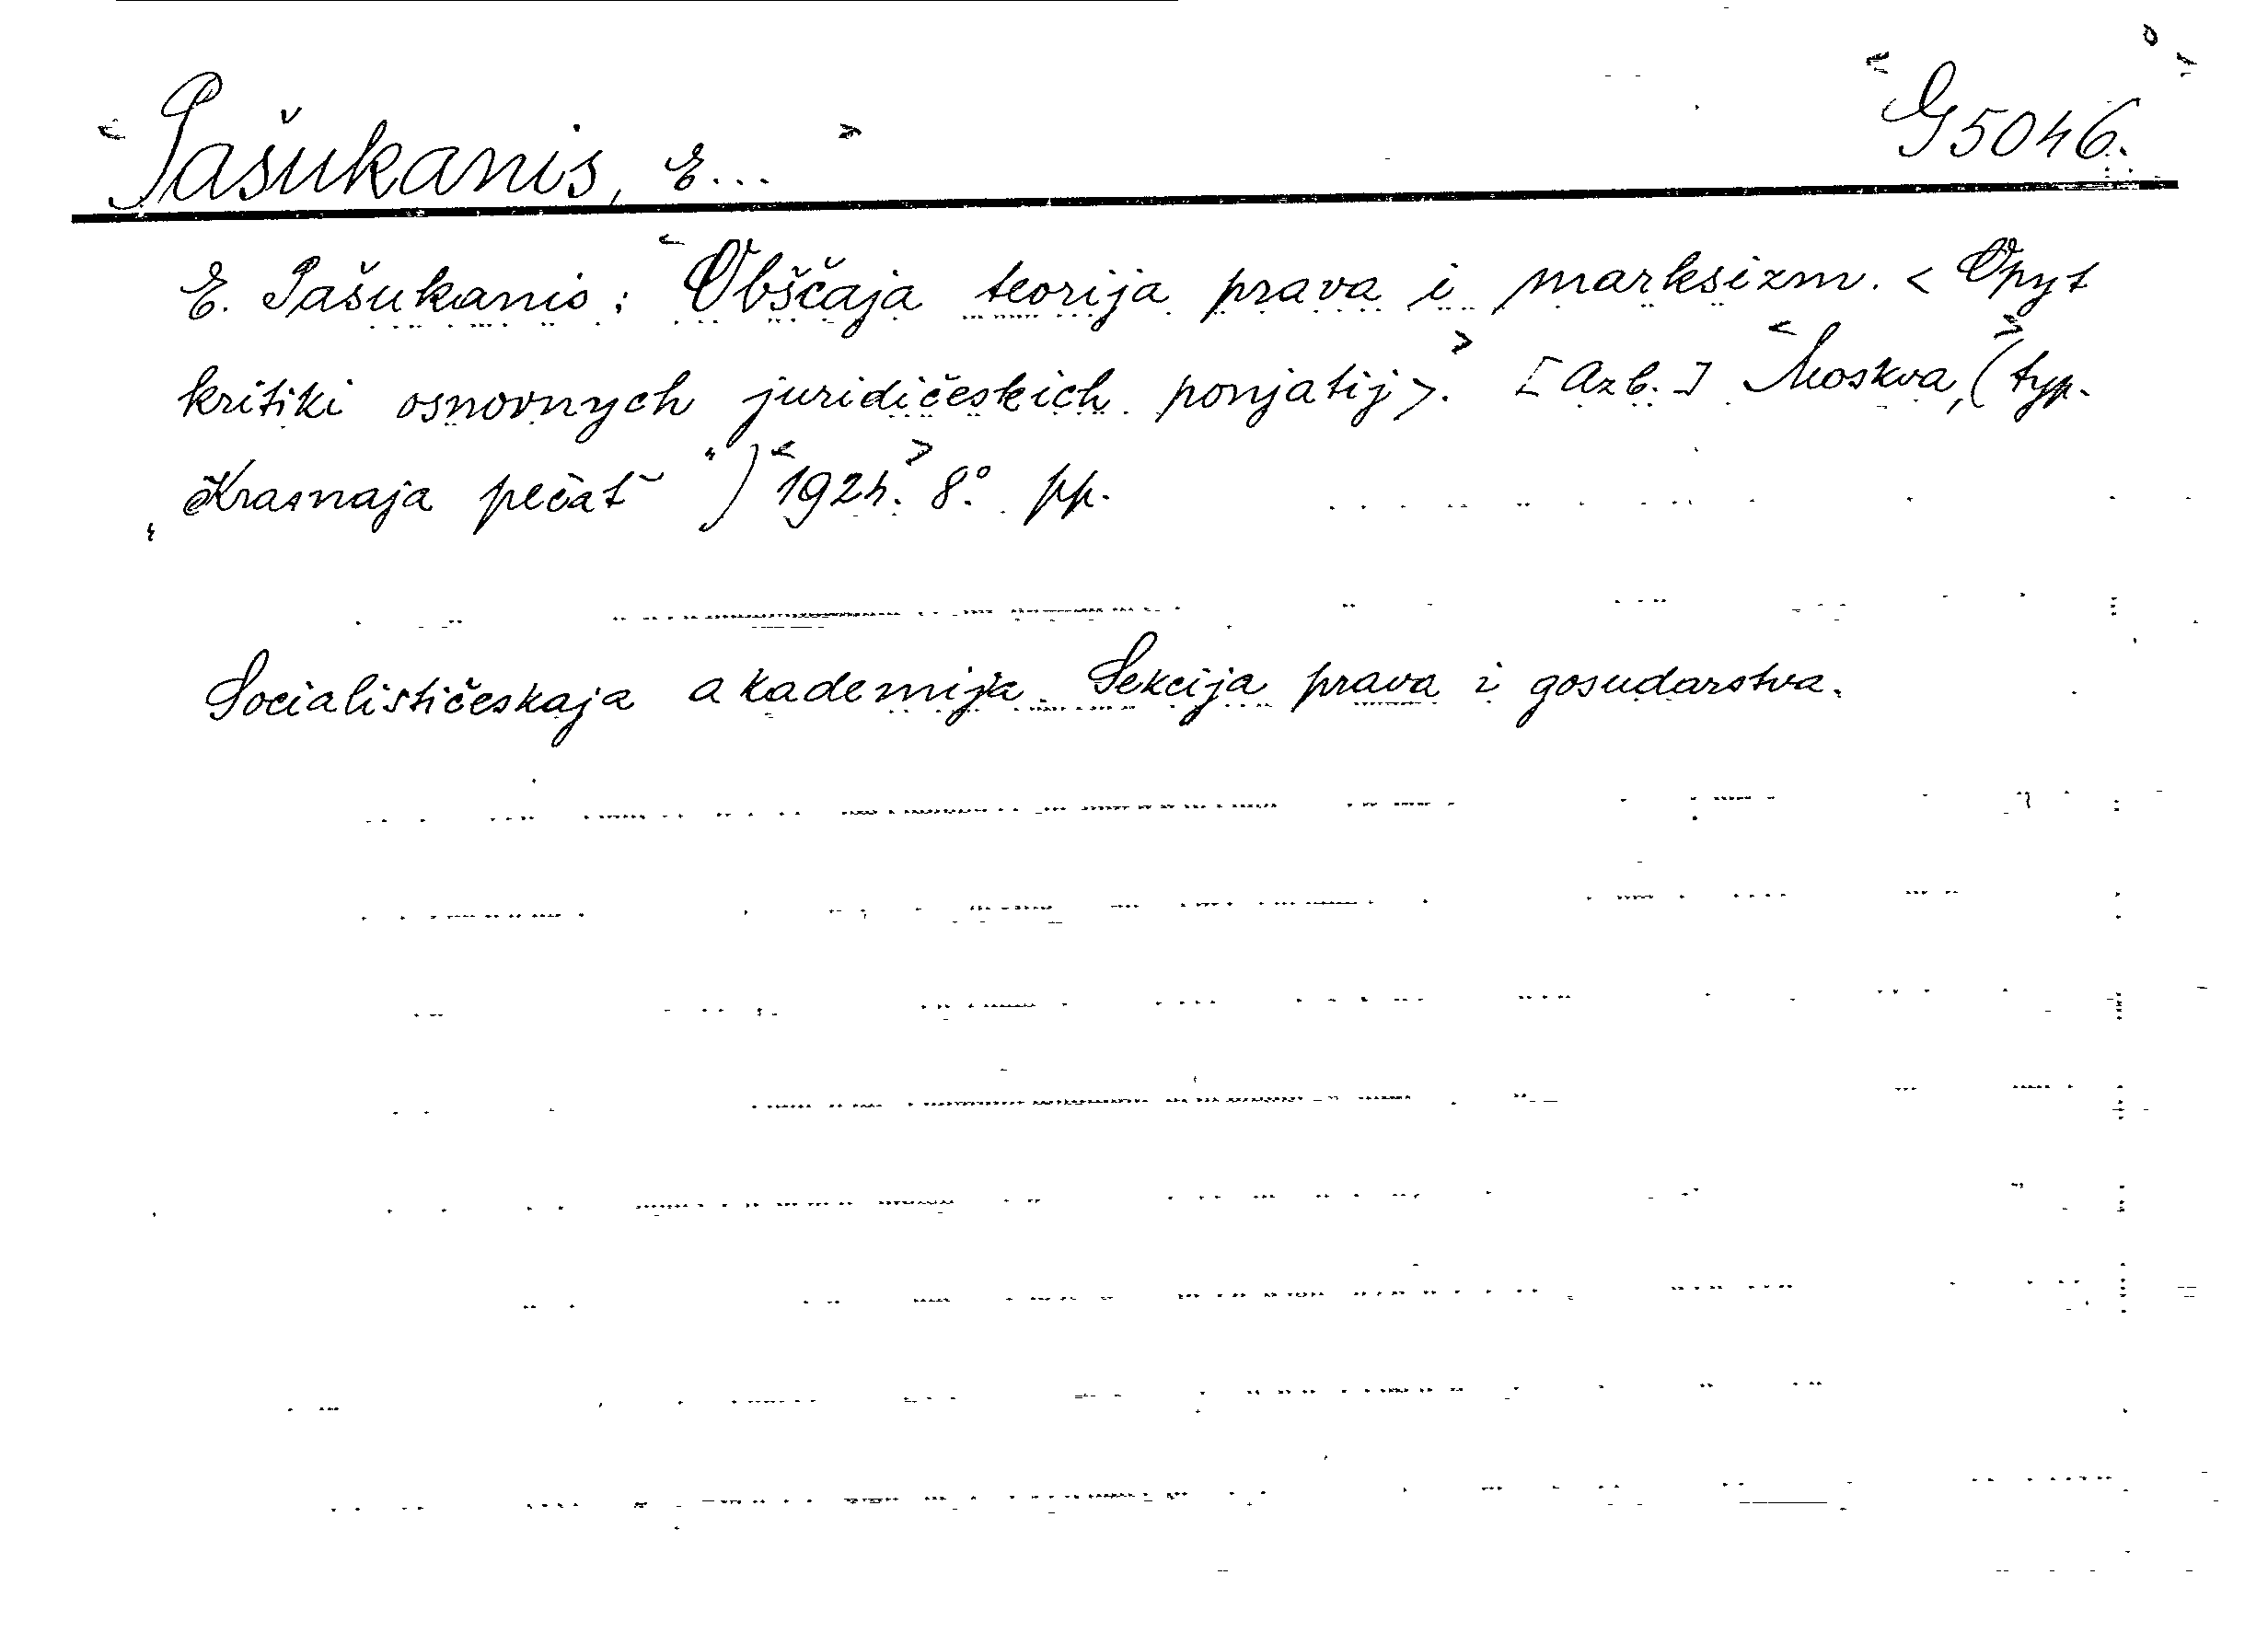 < Pašukanis, E... >
< G 5046. >
E. Pašukanis: < Obščaja teorija prava i marksizm. < Opyt
kritiki osnovnych juridičeskich ponjatij >. > [Azb.] < Moskva, > (typ.
„Krasnaja pečat'“) < 1924. > 8°. pp.
Socialističeskaja akademija. Sekcija prava i gosudarstva.